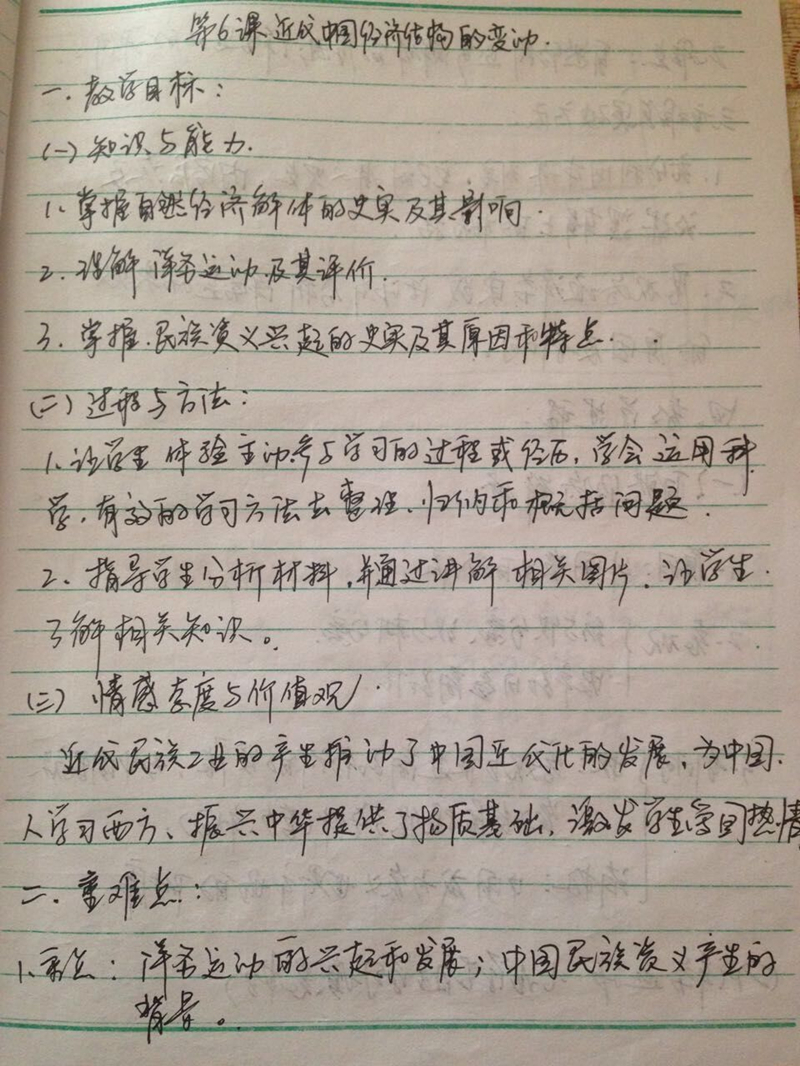 第6课 近代中国经济结构的变动.
一. 教学目标:
(一)知识与能力.
1、掌握自然经济解体的史实及其影响.
2. 理解洋务运动及其评价.
3. 掌握民族资义兴起的史实及其原因和特点.
(二)过程与方法:
1、让学生体验主动参与学习的过程或经历,学会运用科
学、有效的学习方法去整理、归纳和概括问题.
2、指导学生分析材料,并通过讲解相关图片、让学生
了解相关知识。
(三)情感态度与价值观.
近代民族工业的产生推动了中国近代化的发展,为中国
人学习西方、振兴中华提供了物质基础,激发学生学习热情
二. 重难点:
1、重点:洋务运动的兴起和发展;中国民族资义产生的
背景。